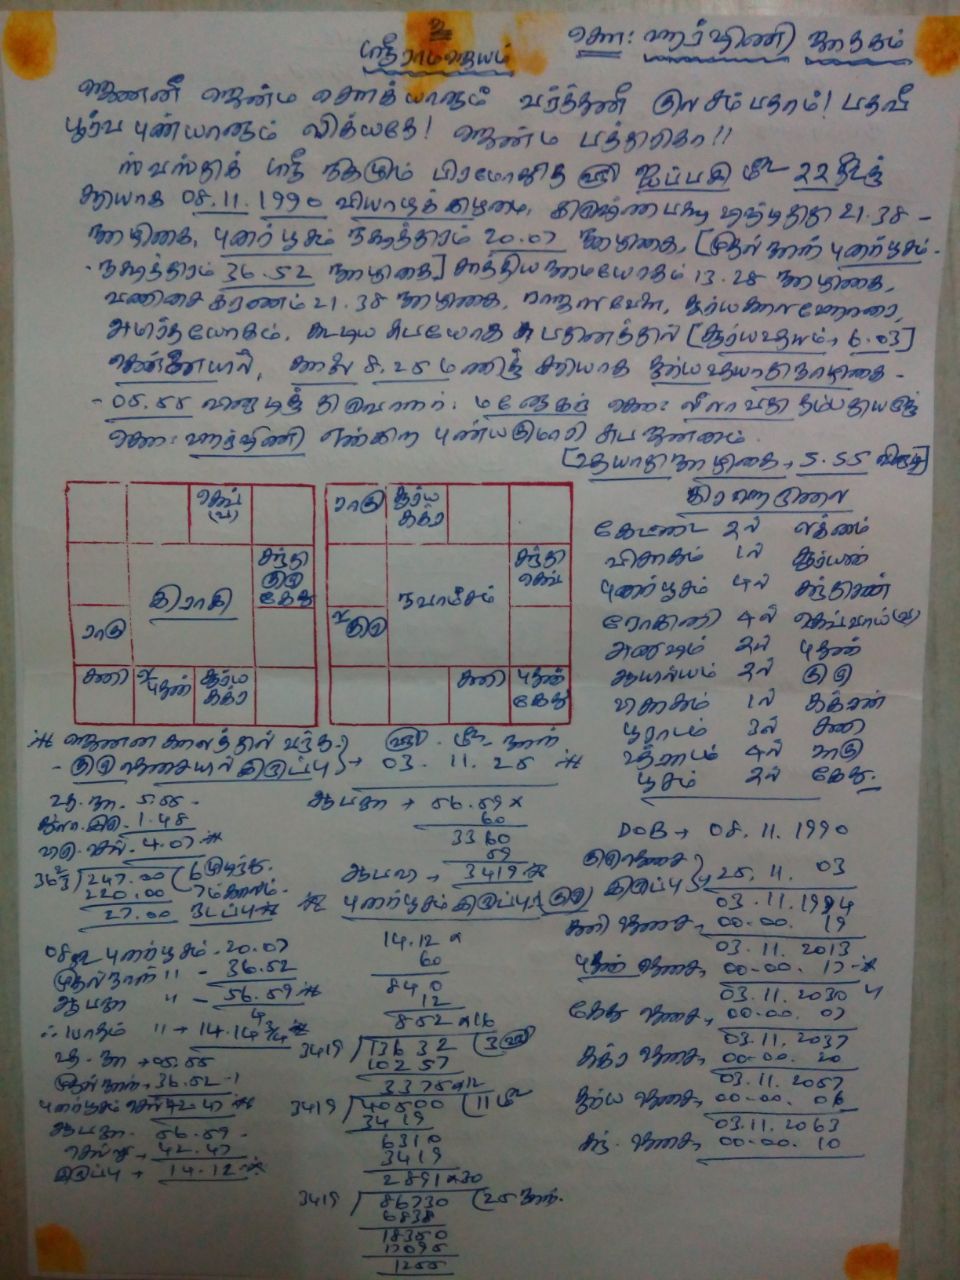 உ
ஸ்ரீராமஜெயம்
சௌ: ஹர்ஷிணி ஜாதகம்
ஜெனனீ ஜென்ம சௌக்யானாம் வர்த்தனீ குலசம்பதாம்! பதவீ
பூர்வ புண்யானாம் லிக்யதே! ஜென்ம பத்திரிகா!!
ஸ்வஸ்திக் ஸ்ரீ நிகழும் பிரமோதூத ஐப்பசி 22
சரியாக 08.11.1990 வியாழக்கிழமை, கிருஷ்ணபக்ஷ 21.38 -
நாழிகை, புனர்பூசம் நக்ஷத்திரம் 20.07 நாழிகை, [முதல்நாள் புனர்பூசம் -
- நக்ஷத்திரம் 36.52 நாழிகை] சாத்தியநாமயோகம் 13.28 நாழிகை,
வணிசை கரணம் 21.38 நாழிகை, சூர்யகாலஹோரை,
அமிர்தயோகம், கூடிய சுபயோக சுபதினத்தில் [சூர்யஉதயம், 6.03]
சென்னையில், காலை 8.25 மணிக்கு சரியாக சூர்யஉதயாதிநாழிகை -
- 05.55 மனோகர் சௌ: லீலாவதி தம்பதியருக்கு
சௌ: ஹர்ஷிணி என்கிற புண்யகுமாரி சுப ஜனனம்.
[உதயாதிநாழிகை, 5.55 விநாடி]
செவ் (வ)
சந்தி குரு கேது
இராசி
ராகு
சனி ல/புதன் சூர்ய சுக்ர
ராகு சூர்ய சுக்ர
சந்தி செவ்
நவாம்சம்
ல/குரு
சனி புதன் கேது
கிரஹநிலை
கேட்டை 2ல் லக்னம்
விசாகம் 1ல் சூர்யன்
புனர்பூசம் 4ல் சந்திரன்
ரோகிணி 4ல் செவ்வாய் (வ)
அனுஷம் 2ல் புதன்
ஆயில்யம் 2ல் குரு
விசாகம் 1ல் சுக்ரன்
பூராடம் 3ல் சனி
உத்ராடம் 4ல் ராகு
பூசம் 2ல் கேது.
* ஜெனன காலத்தில் வந்த
- குருதசையில் இருப்பு → 03.11.25 *
உ.நா. 5.55 -
1.48
4.07 *
36 2/3 ) 247.00 ( 6
220.00 7
27.00 3
ஆயநா → 56.59 x
60
3360
59
ஆயநா → 3419 *
* புனர்பூசம் இருப்பு (குரு)
புனர்பூசம் - 20.07
முதல்நாள் " - 36.52
ஆயநா " - 56.59 *
∴ பாதம் " → 14.14 3/4 *
உ.நா → 05.55
முதல்நாள் → 36.52
புனர்பூசம் சென் 42.47 *
ஆயநா. 56.59 -
சென்று → 42.47
இருப்பு → 14.12 *
14.12 *
60
840
12
852 x 16
3419 ) 13632 ( 3
10257
3375 x 12
3419 ) 40500 ( 11
3419
6310
3419
2891 x 30
3419 ) 86730 ( 25 நாள்.
6838
18350
17095
1255
DOB → 08.11.1990
குருதசை
இருப்பு → 25.11.03
03.11.1994
சனி தசை, 00.00.19
03.11.2013
புதன் தசை, 00.00.17 *
03.11.2030
கேது தசை, 00.00.07
03.11.2037
சுக்ர தசை, 00.00.20
03.11.2057
சூர்ய தசை, 00.00.06
03.11.2063
சந். தசை, 00.00.10